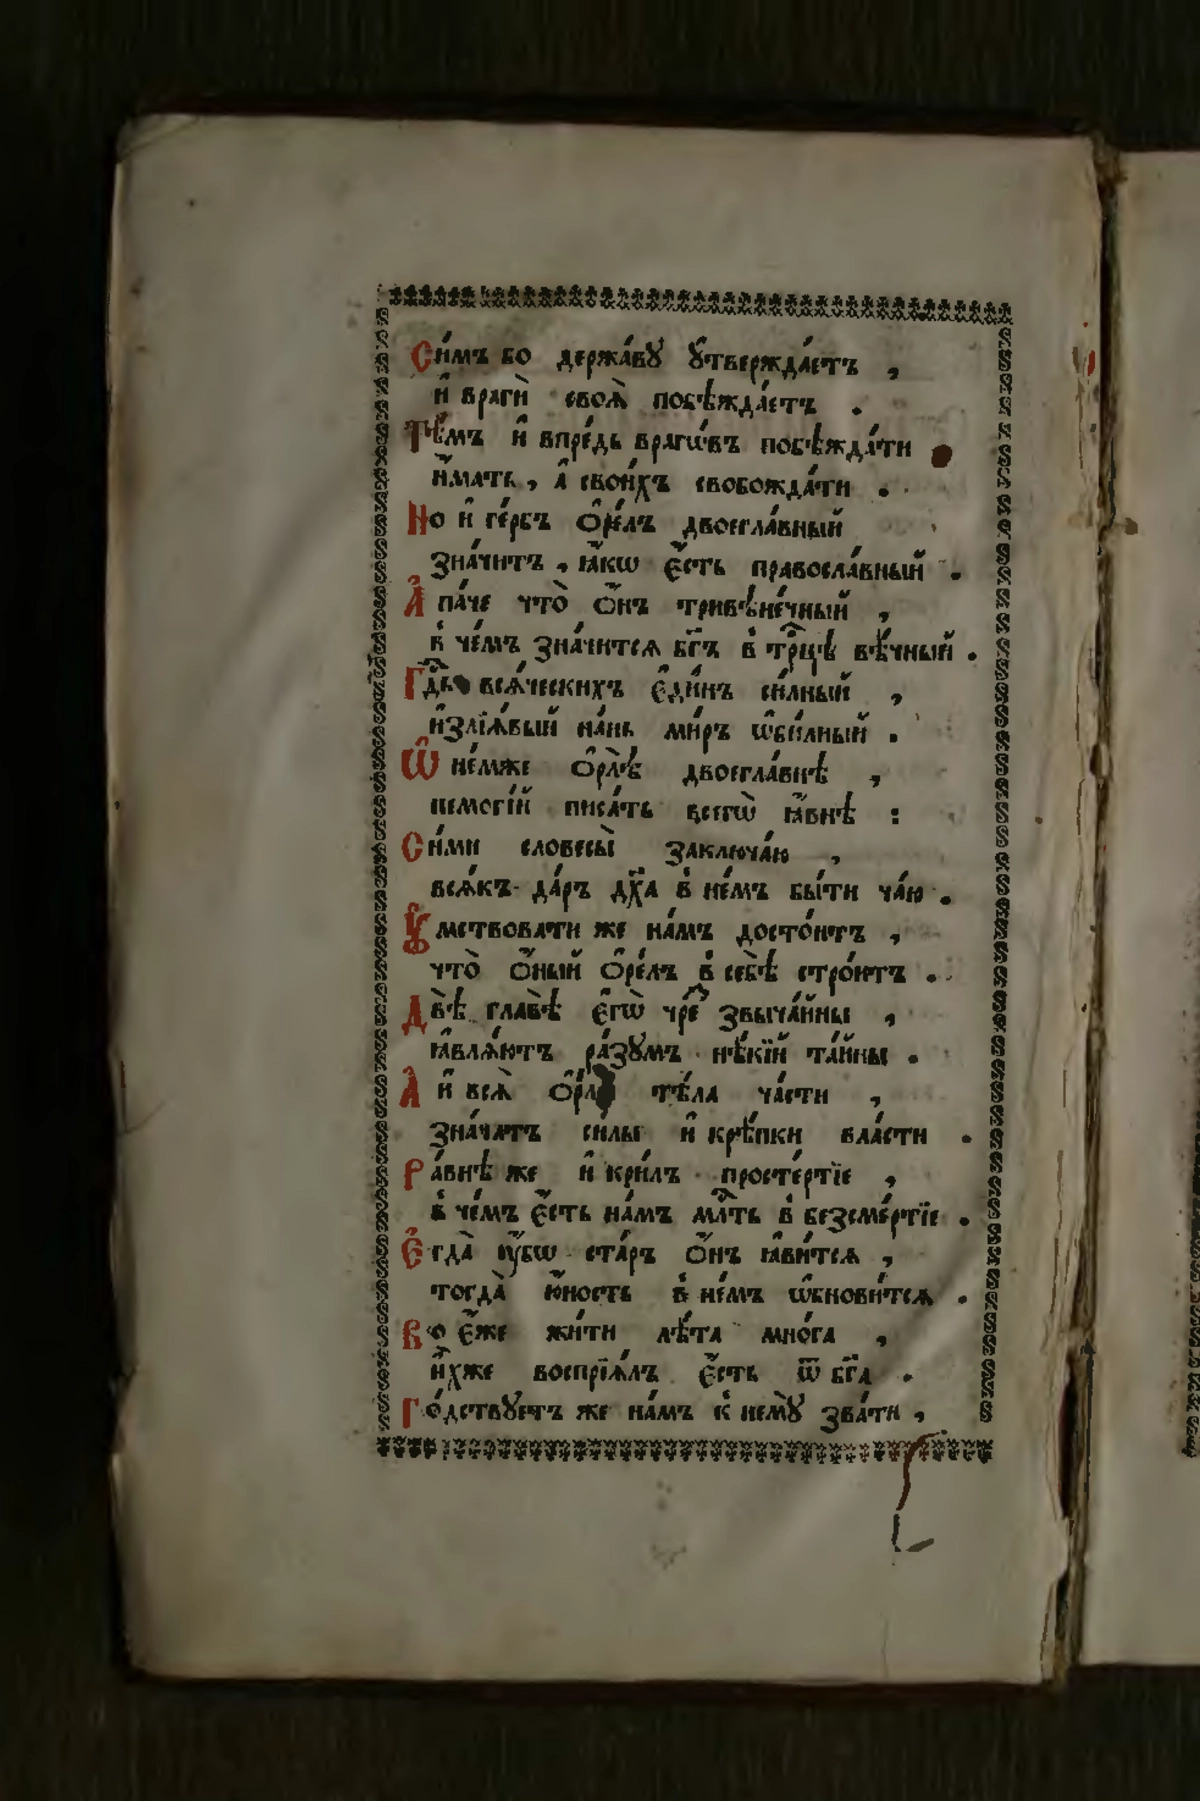 Си́мъ бо держа́вꙋ ᲂу҆твержда́етъ ,
и҆ враги̑ своѧ̑ побѣжда́етъ .
Тѣ́мъ и҆ впре́дь врагѡ́въ побѣжда́ти
и҆́мать , а҆ свои́хъ свобожда́ти .
Но и҆ ге́рбъ Ѻ҆ре́лъ двоегла́вный
зна́читъ , ꙗ҆́кѡ є҆́сть правосла́вный .
А҆ па́че что̀ ѻ҆́нъ тривѣне́чный ,
в̾ че́мъ зна́читсѧ бг҃ъ в̾ трⷪ҇цѣ вѣ́чный .
Гдⷭ҇ь всѧ́ческихъ є҆ди́нъ си́лный ,
и҆злїѧ́вый на́нь ми́ръ ѡ҆би́лный .
Ѡ҆ не́мже Ѻ҆рлѣ̀ двоегла́внѣ ,
немогі́й писа́ть всегѡ̀ ꙗ҆́внѣ :
Си́ми словесы̀ заключа́ю ,
всѧ́къ да́ръ дх҃а в̾ не́мъ бы́ти ча́ю .
Оу҆́мствовати же на́мъ досто́итъ ,
что̀ ѻ҆́ный Ѻ҆ре́лъ в̾ себѣ̀ стро́итъ .
Двѣ̀ главѣ̀ є҆гѡ̀ чрⷥ҇е звыча́йны ,
ꙗ҆влѧ́ютъ ра́зꙋмъ нѣ́кїй та́йны .
А҆ и҆ всѧ̑ тѣ́ла ча́сти ,
зна́чатъ си́лы и҆ крѣ́пки вла́сти .
Ра́внѣ же и҆ кри́лъ просте́ртїе ,
в̾ че́мъ є҆́сть на́мъ млⷭ҇ть в̾ безсме́ртїе .
Є҆гда̀ ᲂу҆́бѡ ста́ръ ѻ҆́нъ ꙗ҆ви́тсѧ ,
тогда̀ ю҆́ность в̾ не́мъ ѡ҆бнови́тсѧ .
Во є҆́же жи́ти лѣ́та мно́га ,
и҆́хже воспрїѧ́лъ є҆́сть ѿ бг҃а .
Го́дствꙋетъ же на́мъ к̾ немꙋ̀ зва́ти ,